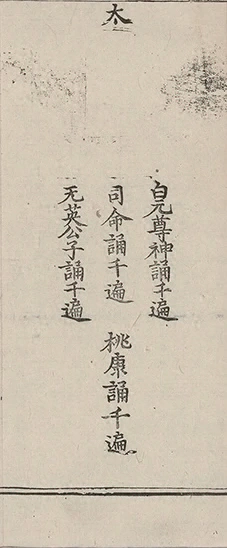 太
白元尊神誦千遍
司命誦千遍
桃康誦千遍
无英公子誦千遍